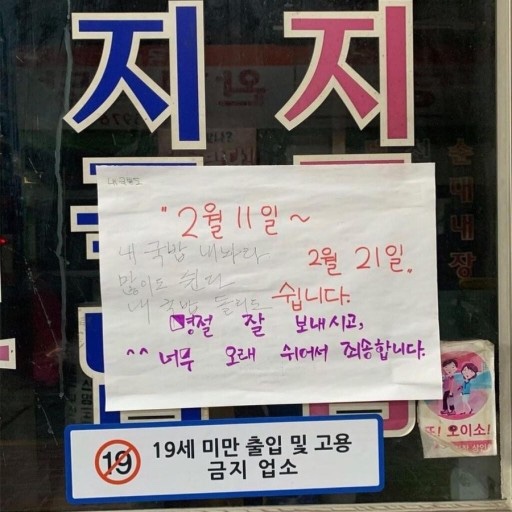 지 지
순대내장
내 국밥
"2월 11일~
내 국밥 내놔라
2월 21일.
많이도 쉰다
내 국밥 돌리도
쉽니다.
명절 잘 보내시고,
^^ 너무 오래 쉬어서 죄송합니다.
또! 오이소!
19 19세 미만 출입 및 고용
금지 업소